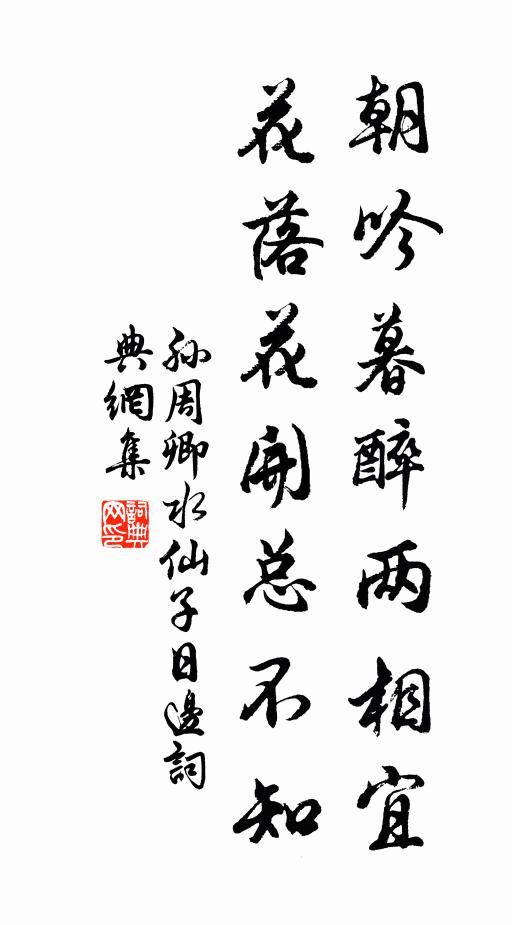 朝吟暮醉两相宜
花落花開总不知
孙周卿水仙子日邊詞
典網集
詞典網印